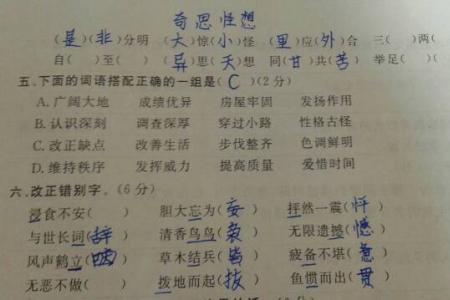 奇思怪想
(是)(非)分明 (大)惊(小)怪 (里)应(外)合 三( )两(
自( )至( ) (异)思(天)想 同(甘)共(苦) 举足( )(
五、下面的词语搭配正确的一组是(C)(2分)
A. 广阔大地 成绩优异 房屋牢固 发扬作用
B. 认识深刻 调查深厚 穿过小路 性格古怪
C. 改正缺点 改善生活 步伐整齐 色调鲜明
D. 维持秩序 发挥威力 提高质量 爱惜时间
六、改正错别字。(6分)
寝食不安( ) 胆大忘为(妄) 抨然一震(怦)
与世长词(辞) 清香鸟鸟(袅) 无限遗撼(憾)
风声鹤立(唳) 草木结兵(皆) 疲备不堪(惫)
无恶不做( ) 拨地而起(拔) 鱼惯而出(贯)